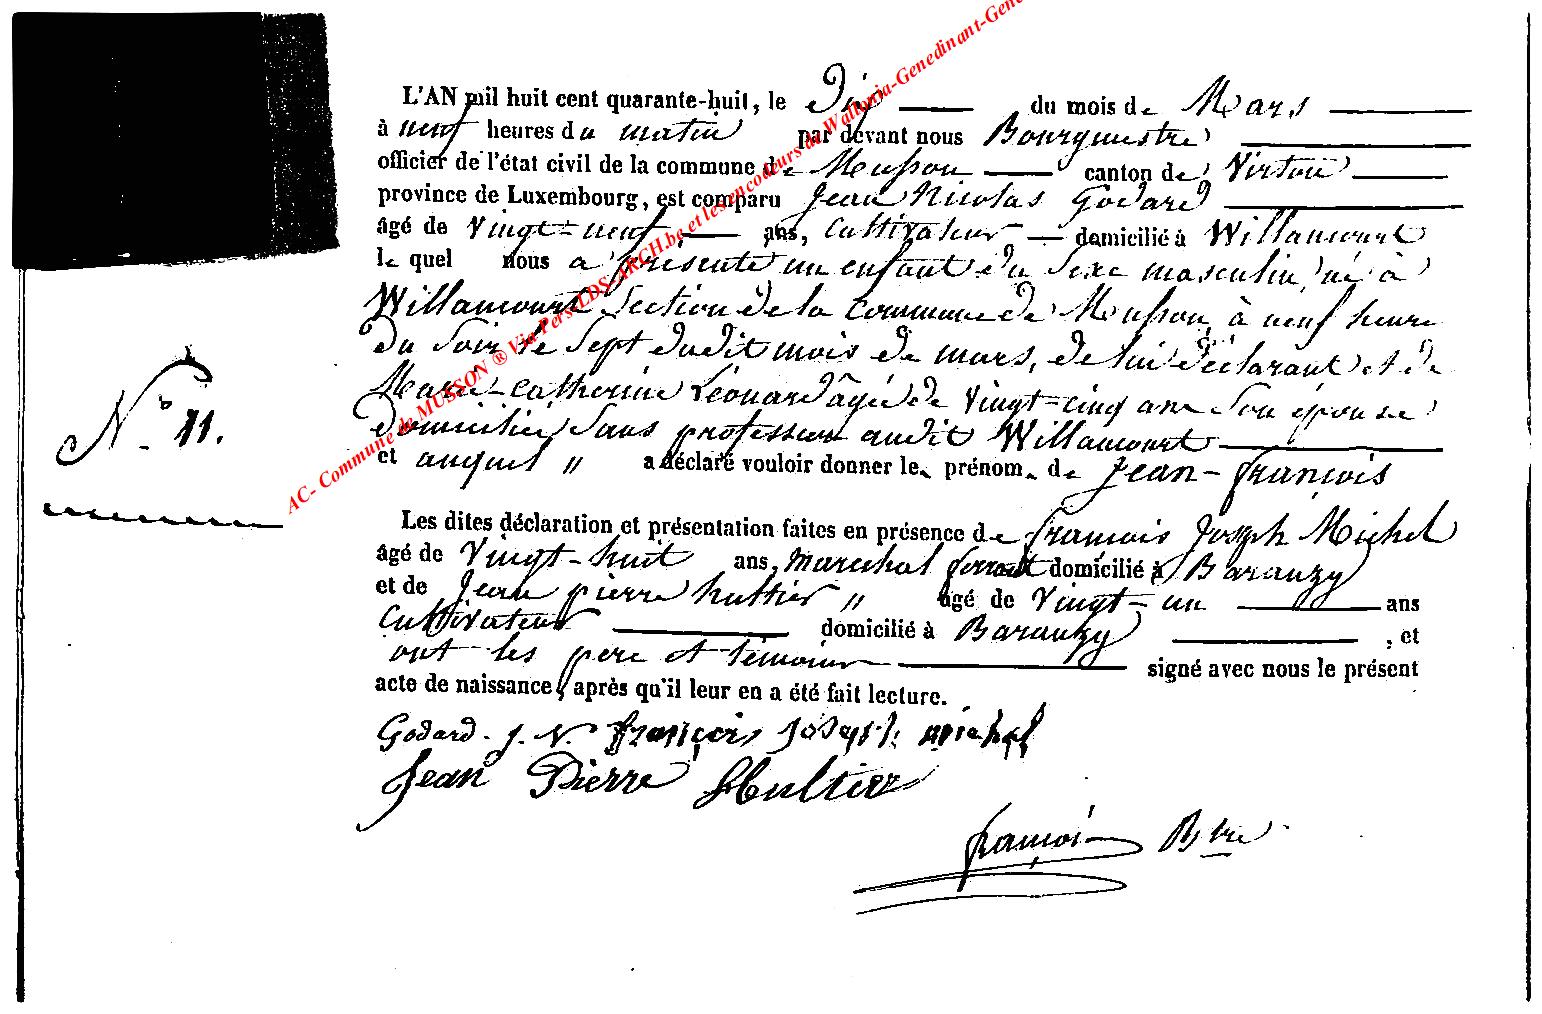 L'AN mil huit cent quarante-huit, le Dix du mois de Mars
à neuf heures du matin par devant nous Bourgmestre
officier de l'état civil de la commune de Musson canton de Virton
province de Luxembourg, est comparu Jean Nicolas Godard
âgé de Vingt-neuf ans, Cultivateur domicilié à Willancourt
le quel nous a présenté un enfant du sexe masculin, né à
Willancourt Section de la commune de Musson, à neuf heure
du Soir le Sept dudit mois de mars, de lui déclarant et de
Marie-Catherine Léonard âgée de Vingt-cinq ans Son épouse
domiciliée Sans profession audit Willancourt
N° 11.
et auquel " a déclaré vouloir donner le prénom de Jean-françois
Les dites déclaration et présentation faites en présence de françois Joseph Michel
âgé de Vingt-huit ans, marechal ferrant domicilié à Baranzy
et de Jean pierre hultier " âgé de Vingt-un ans
Cultivateur domicilié à Baranzy , et
ont les père et témoins signé avec nous le présent
acte de naissance, après qu'il leur en a été fait lecture.
Godard. J. N. françois Joseph michel
Jean Pierre Hultier
françois Btre
AC- Commune de MUSSON ® Via Pers-LDS-ARCH.be et les encodeurs de Wallonia-Genedinant-Gene